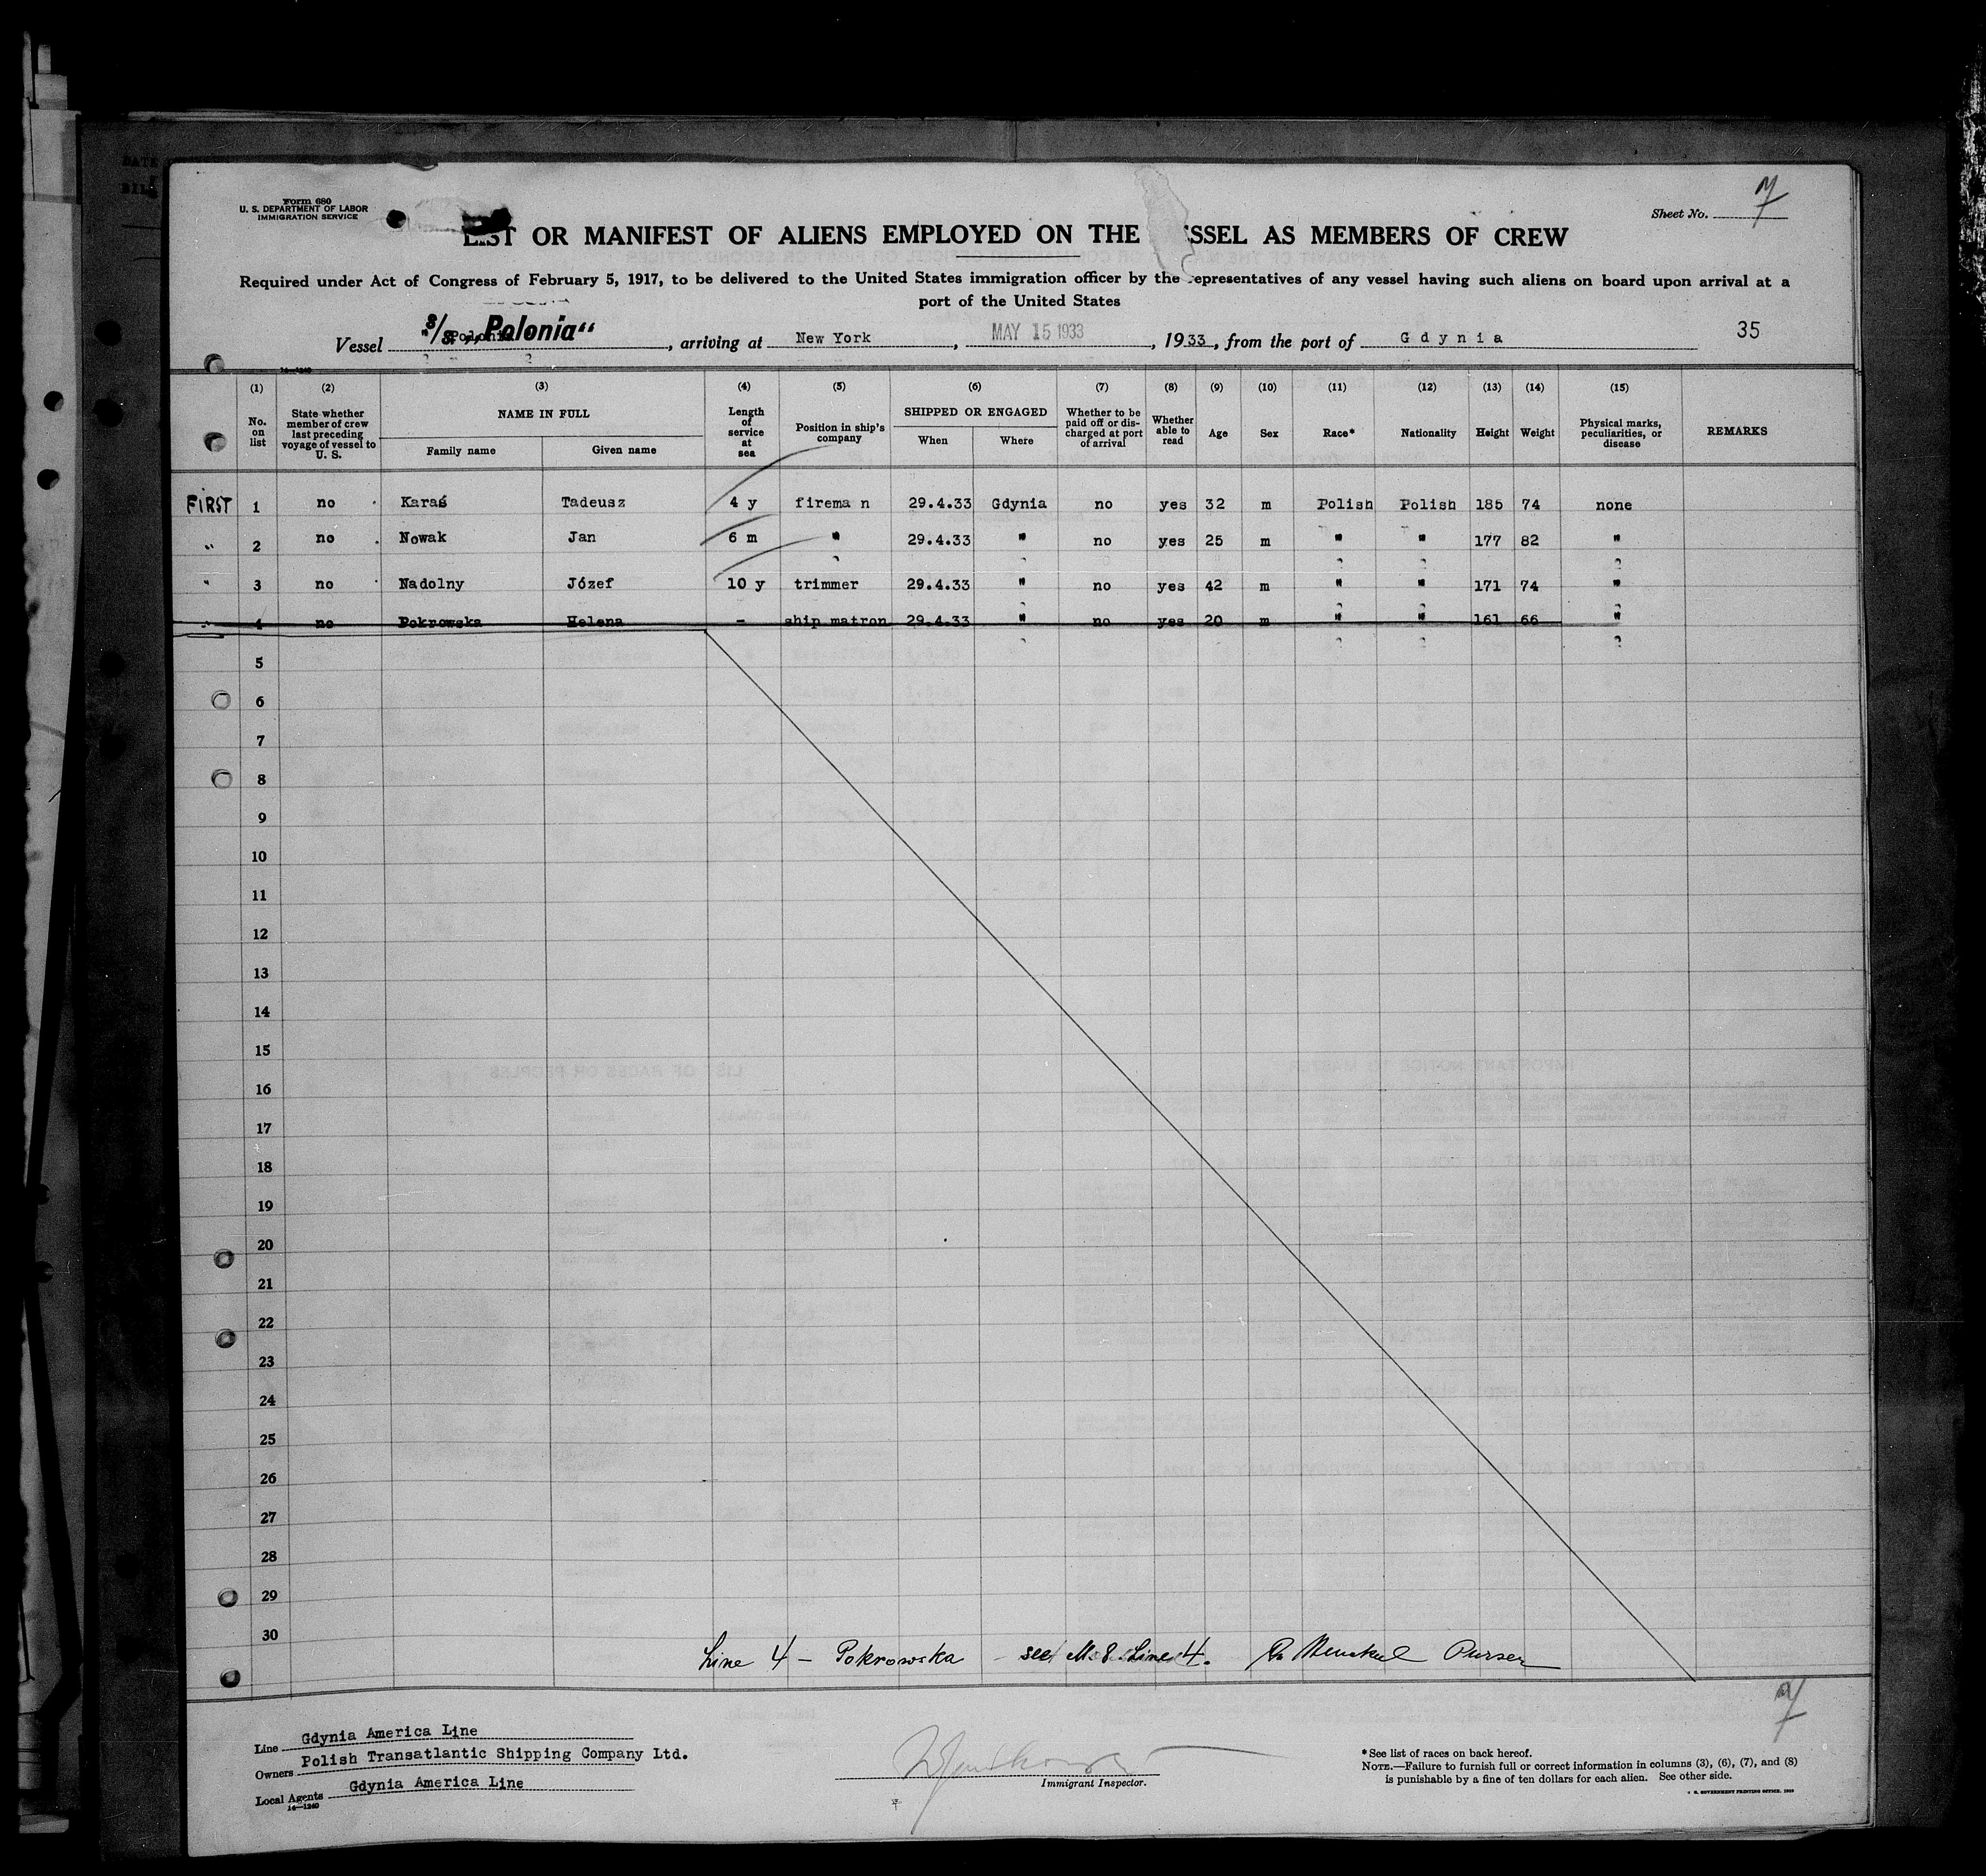 Form 680
U. S. DEPARTMENT OF LABOR
IMMIGRATION SERVICE
Sheet No. 7
LIST OR MANIFEST OF ALIENS EMPLOYED ON THE VESSEL AS MEMBERS OF CREW
Required under Act of Congress of February 5, 1917, to be delivered to the United States immigration officer by the representatives of any vessel having such aliens on board upon arrival at a
port of the United States
Vessel S/S. „Polonia“, arriving at New York, MAY 15 1933, 1933, from the port of Gdynia 35
14—1240
(1) (2) (3) (4) (5) (6) (7) (8) (9) (10) (11) (12) (13) (14) (15)
No. on list State whether member of crew last preceding voyage of vessel to U. S. NAME IN FULL Family name Given name Length of service at sea Position in ship's company SHIPPED OR ENGAGED When Where Whether to be paid off or discharged at port of arrival Whether able to read Age Sex Race* Nationality Height Weight Physical marks, peculiarities, or disease REMARKS
FIRST 1 no Karaś Tadeusz 4 y firema n 29.4.33 Gdynia no yes 32 m Polish Polish 185 74 none
" 2 no Nowak Jan 6 m " 29.4.33 " no yes 25 m " " 177 82 "
" 3 no Nadolny Józef 10 y trimmer 29.4.33 " no yes 42 m " " 171 74 "
" 4 no Pokrowska Helena - ship matron 29.4.33 " no yes 20 m " " 161 66 "
5
6
7
8
9
10
11
12
13
14
15
16
17
18
19
20
21
22
23
24
25
26
27
28
29
30
Line 4 – Pokrowska - see M. 8. Line 4. Purser
7
Line Gdynia America Line
Owners Polish Transatlantic Shipping Company Ltd.
Local Agents Gdynia America Line
14—1240
Immigrant Inspector.
*See list of races on back hereof.
NOTE.—Failure to furnish full or correct information in columns (3), (6), (7), and (8)
is punishable by a fine of ten dollars for each alien. See other side.